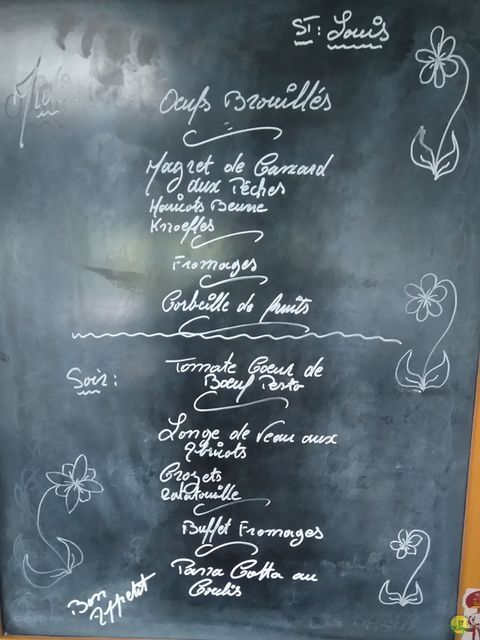 St: Louis
Midi:
Oeufs Brouillés
Magret de Canard
aux Pêches
Haricots Beurre
Knoefles
Fromages
Corbeille de fruits
Soir:
Tomate Coeur de
Boeuf Pesto
Longe de Veau aux
Abricots
Crozets
Ratatouille
Buffet Fromages
Panna Cotta au
Coulis
Bon
Appetit